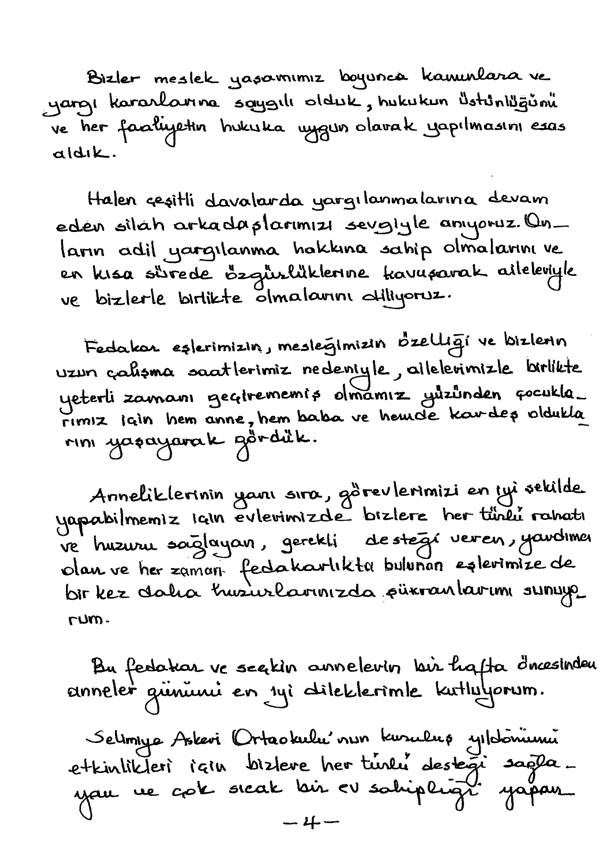 Bizler meslek yaşamımız boyunca kanunlara ve
yargı kararlarına saygılı olduk, hukukun üstünlüğünü
ve her faaliyetin hukuka uygun olarak yapılmasını esas
aldık.
Halen çeşitli davalarda yargılanmalarına devam
eden silah arkadaşlarımızı sevgiyle anıyoruz. On_
ların adil yargılanma hakkına sahip olmalarını ve
en kısa sürede özgürlüklerine kavuşarak aileleriyle
ve bizlerle birlikte olmalarını diliyoruz.
Fedakar eşlerimizin, mesleğimizin özelliği ve bizlerin
uzun çalışma saatlerimiz nedeniyle, ailelerimizle birlikte
yeterli zamanı geçirememiş olmamız yüzünden çocukla_
rımız için hem anne, hem baba ve hemde kardeş oldukla_
rını yaşayarak gördük.
Anneliklerinin yanı sıra, görevlerimizi en iyi şekilde
yapabilmemiz için evlerimizde bizlere her türlü rahatı
ve huzuru sağlayan, gerekli desteği veren, yardımcı
olan ve her zaman fedakarlıkta bulunan eşlerimize de
bir kez daha huzurlarınızda şükranlarımı sunuyo_
rum.
Bu fedakar ve seçkin annelerin bir hafta öncesinden
anneler gününü en iyi dileklerimle kutluyorum.
Selimiye Askeri Ortaokulu'nun kuruluş yıldönümü
etkinlikleri için bizlere her türlü desteği sağla_
yan ve çok sıcak bir ev sahipliği yapan
-4-